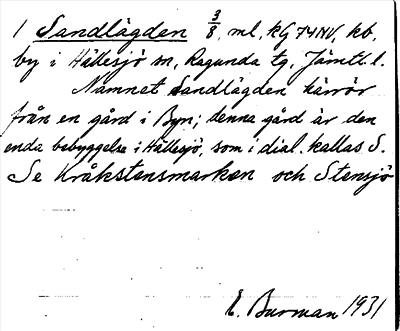 1 Sandlägden 3/8, ml, kG 74NV, kb,
by i Hällesjö sn, Ragunda tg, Jämtl. l.
Namnet Sandlägden härrör
från en gård i Byn; denna gård är den
enda bebyggelse i Hällesjö, som i dial. kallas S.
Se Kråkstensmarken och Stensjö
E. Burman 1931